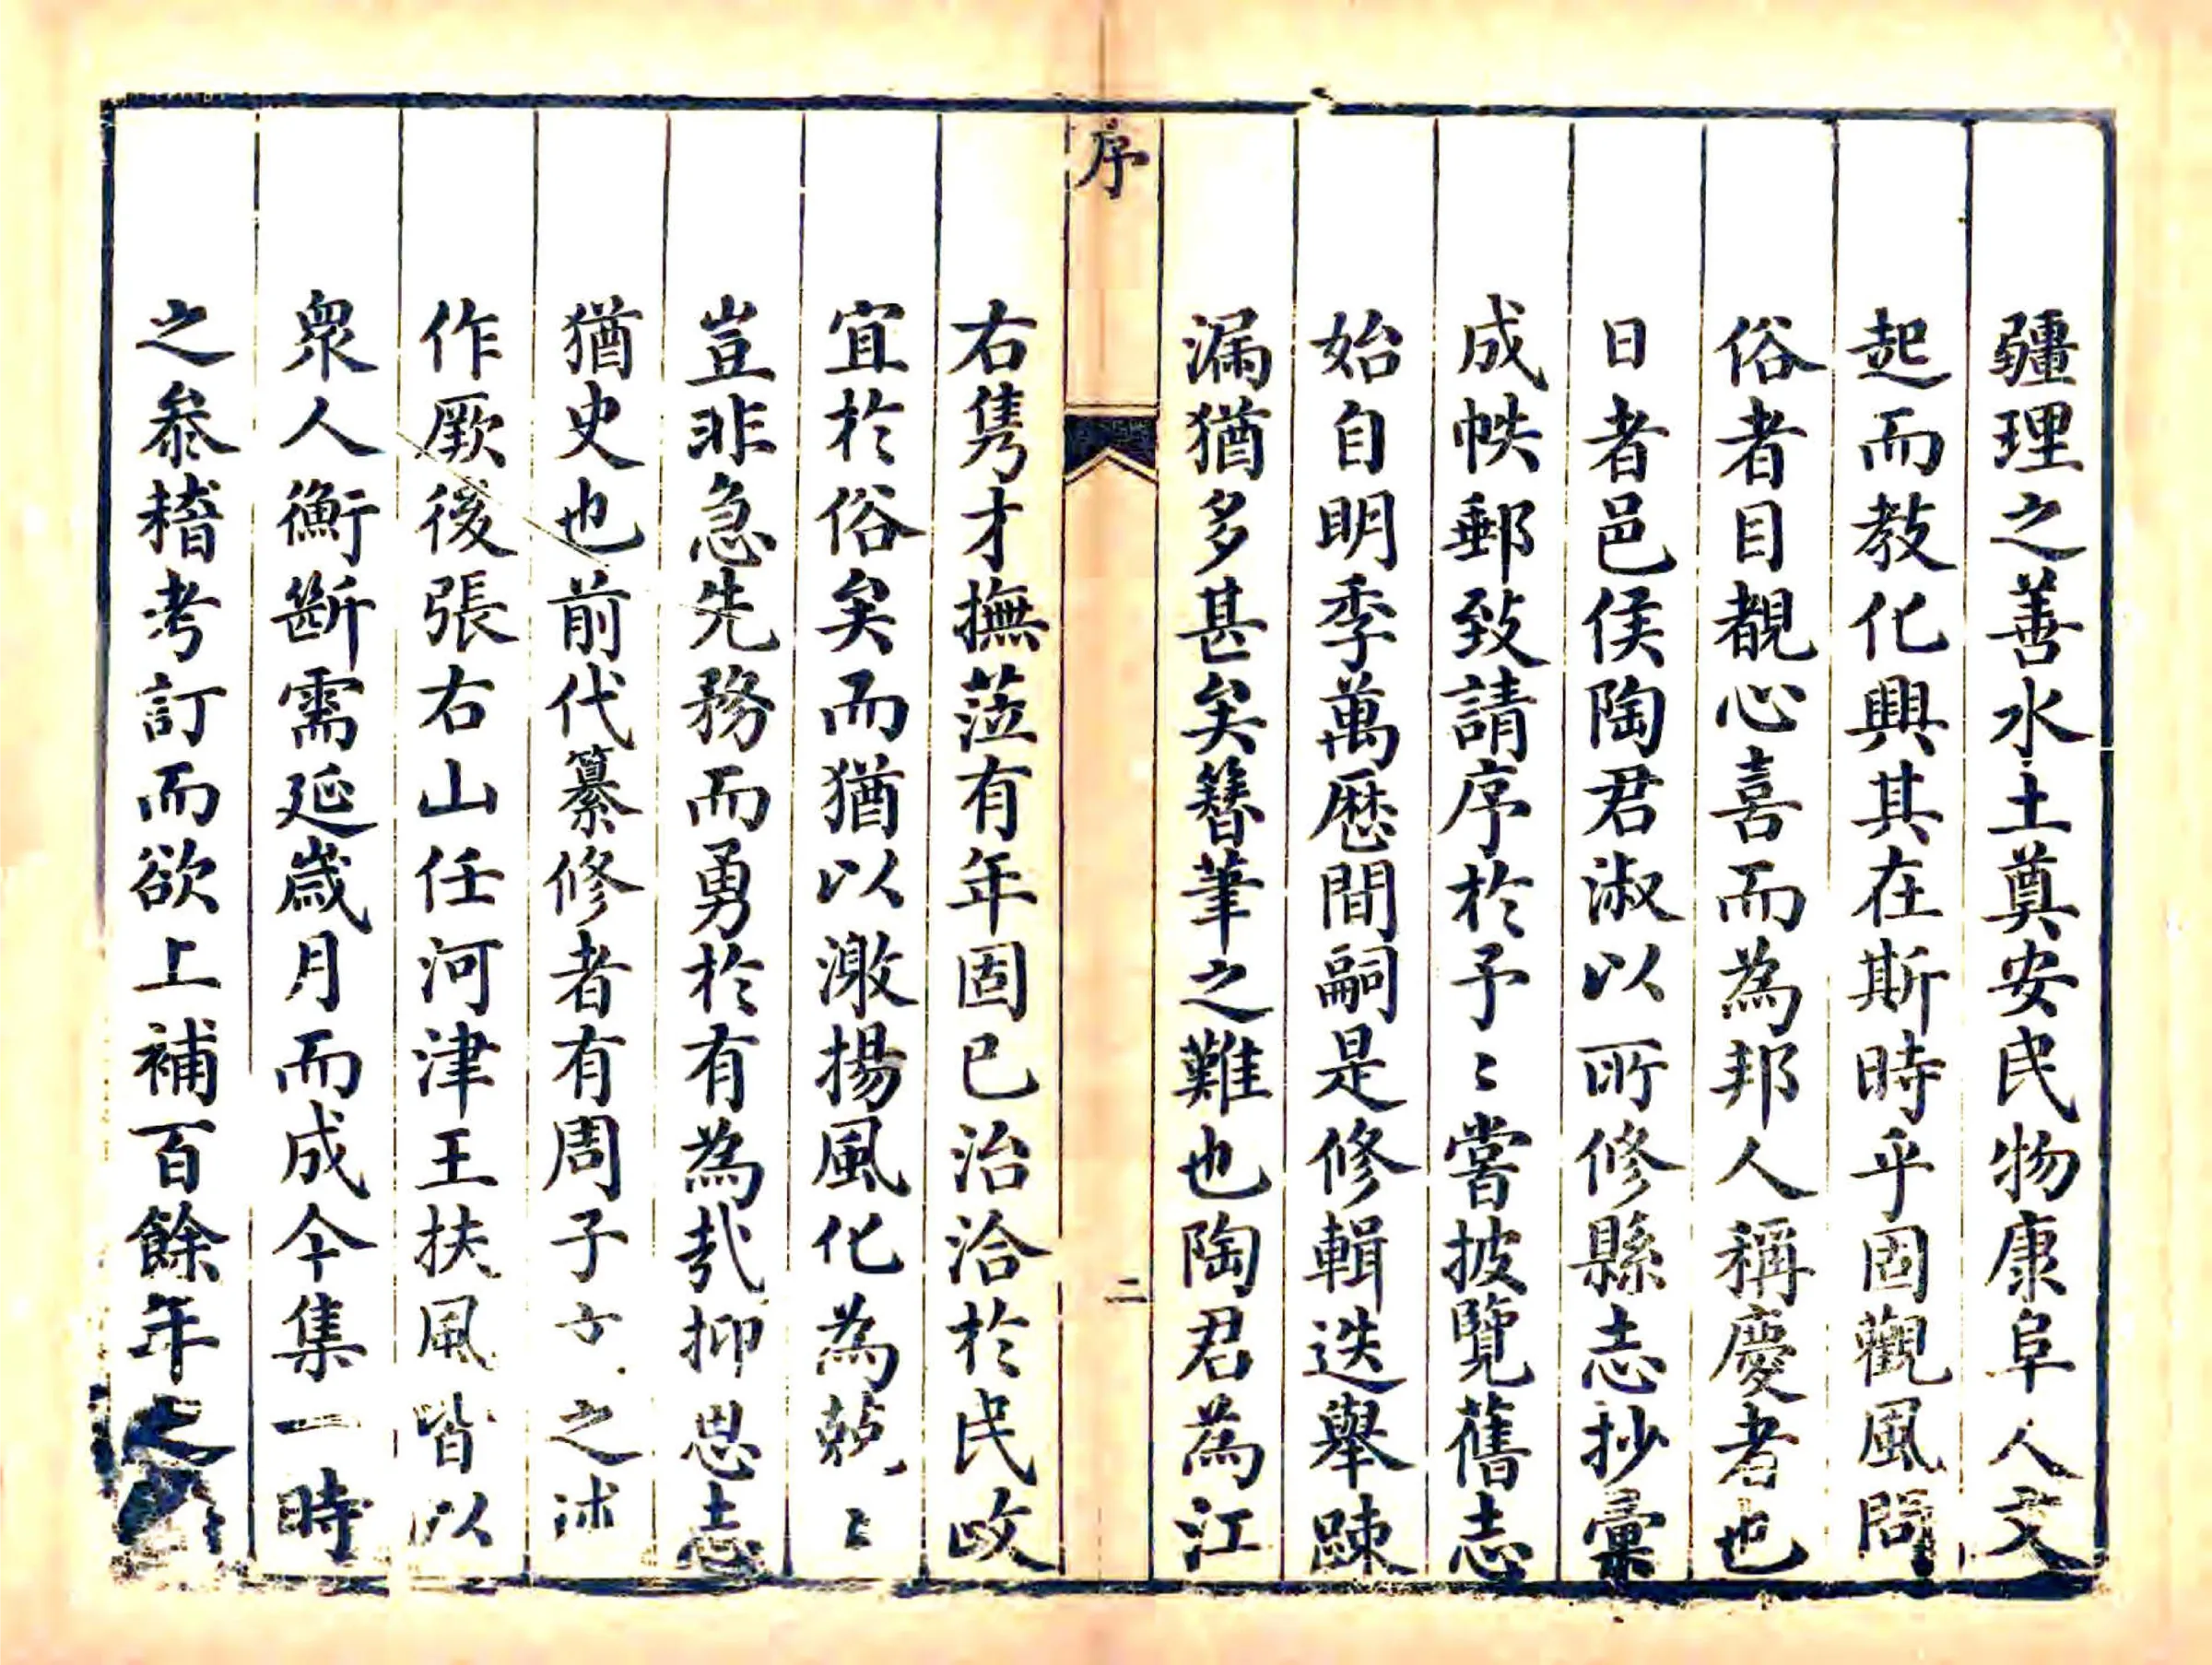 疆理之善水土奠安民物康阜人文
起而教化興其在斯時乎固觀風問
俗者目覩心喜而為邦人稱慶者也
日者邑侯陶君淑以所修縣志抄彙
成帙郵致請序於予〻嘗披覽舊志
始自明季萬歷間嗣是修輯迭舉踈
漏猶多甚矣簪筆之難也陶君為江
序
二
右雋才撫涖有年固已治洽於民政
宜於俗矣而猶以激揚風化為兢〻
豈非急先務而勇於有為哉抑思志
猶史也前代纂修者有周子之述
作厥後張右山任河津王扶風皆以
衆人衡斷需延歲月而成今集一時
之叅稽考訂而欲上補百餘年之